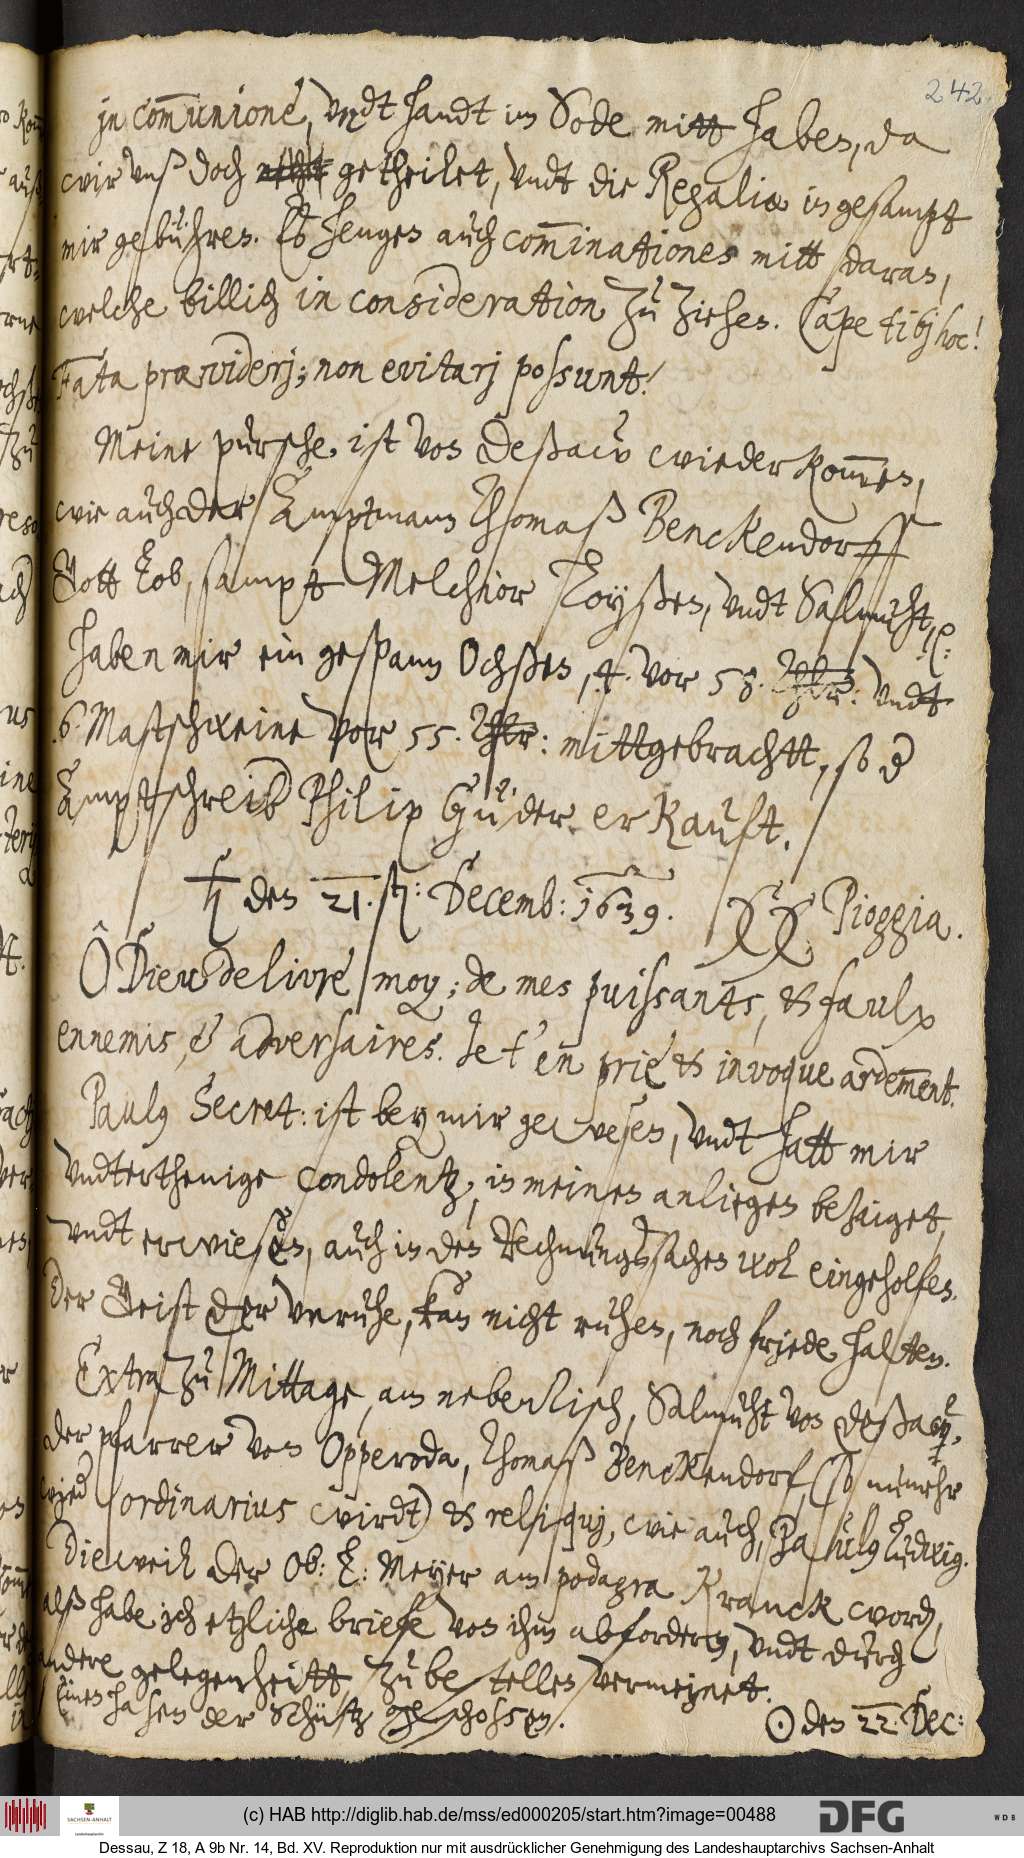 242.
in com̄unione, vndt handt im Sode mitt haben, da
wir vnß doch getheilet, vndt die Regalia ingesampt
mir gebühren. Es hengen auch com̄inationes mitt daran,
welche billich in consideration zu ziehen. Cape tibj hoc!
Fata præviderj; non evitarj possunt!
Meine pursche, ist von Deßaw wieder kom̄en,
wie auch der Amptmann Thomaß Benckendorff
Gott lob, sampt Melchior Loyßen, vndt Salmuht,
haben mir ein gespann Ochßen, 4. vor 58. Thlr: vndt
6 Mastschweine vor 55. Thlr: mittgebrachtt, so d
Amptschreib Philip Güder erkauft.
♄ den 21. st: Decemb: 1639. Pioggia.
Ô Dieu delivre moy; de mes puissants, et faulx
ennemis, & adversaires. Je t'en prie et invoque ardem̄ent.
Paulus Secret: ist bey mir gewesen, vndt hatt mir
vndterthenige condolentz, in meinen anliegen bezeiget,
vndt erwiesen, auch in den Rechnungssachen wol eingeholfen.
Der Geist der vnruhe, kan nicht ruhen, noch friede halten.
Extra zu Mittage, am nebentisch, Salmuht von Deßaw,
der pfarrer von Opperoda, Thomaß Benckendorf, (so nunmehr
wied ordinarius wirdt) et reliquj, wie auch, Paulus Ludwig.
Dieweil der Ob: L: Meyer am podagra kranck word,
alß habe ich etzliche briefe von ihm abfordern, vndt durch
andere gelegenheitt zu bestellen vermeinet.
Einen hasen der Schütz geschossen.
☉ den 22. Dec:
(c) HAB http://diglib.hab.de/mss/ed000205/start.htm?image=00488
SACHSEN-ANHALT
DFG
WDB
Dessau, Z 18, A 9b Nr. 14, Bd. XV. Reproduktion nur mit ausdrücklicher Genehmigung des Landeshauptarchivs Sachsen-Anhalt